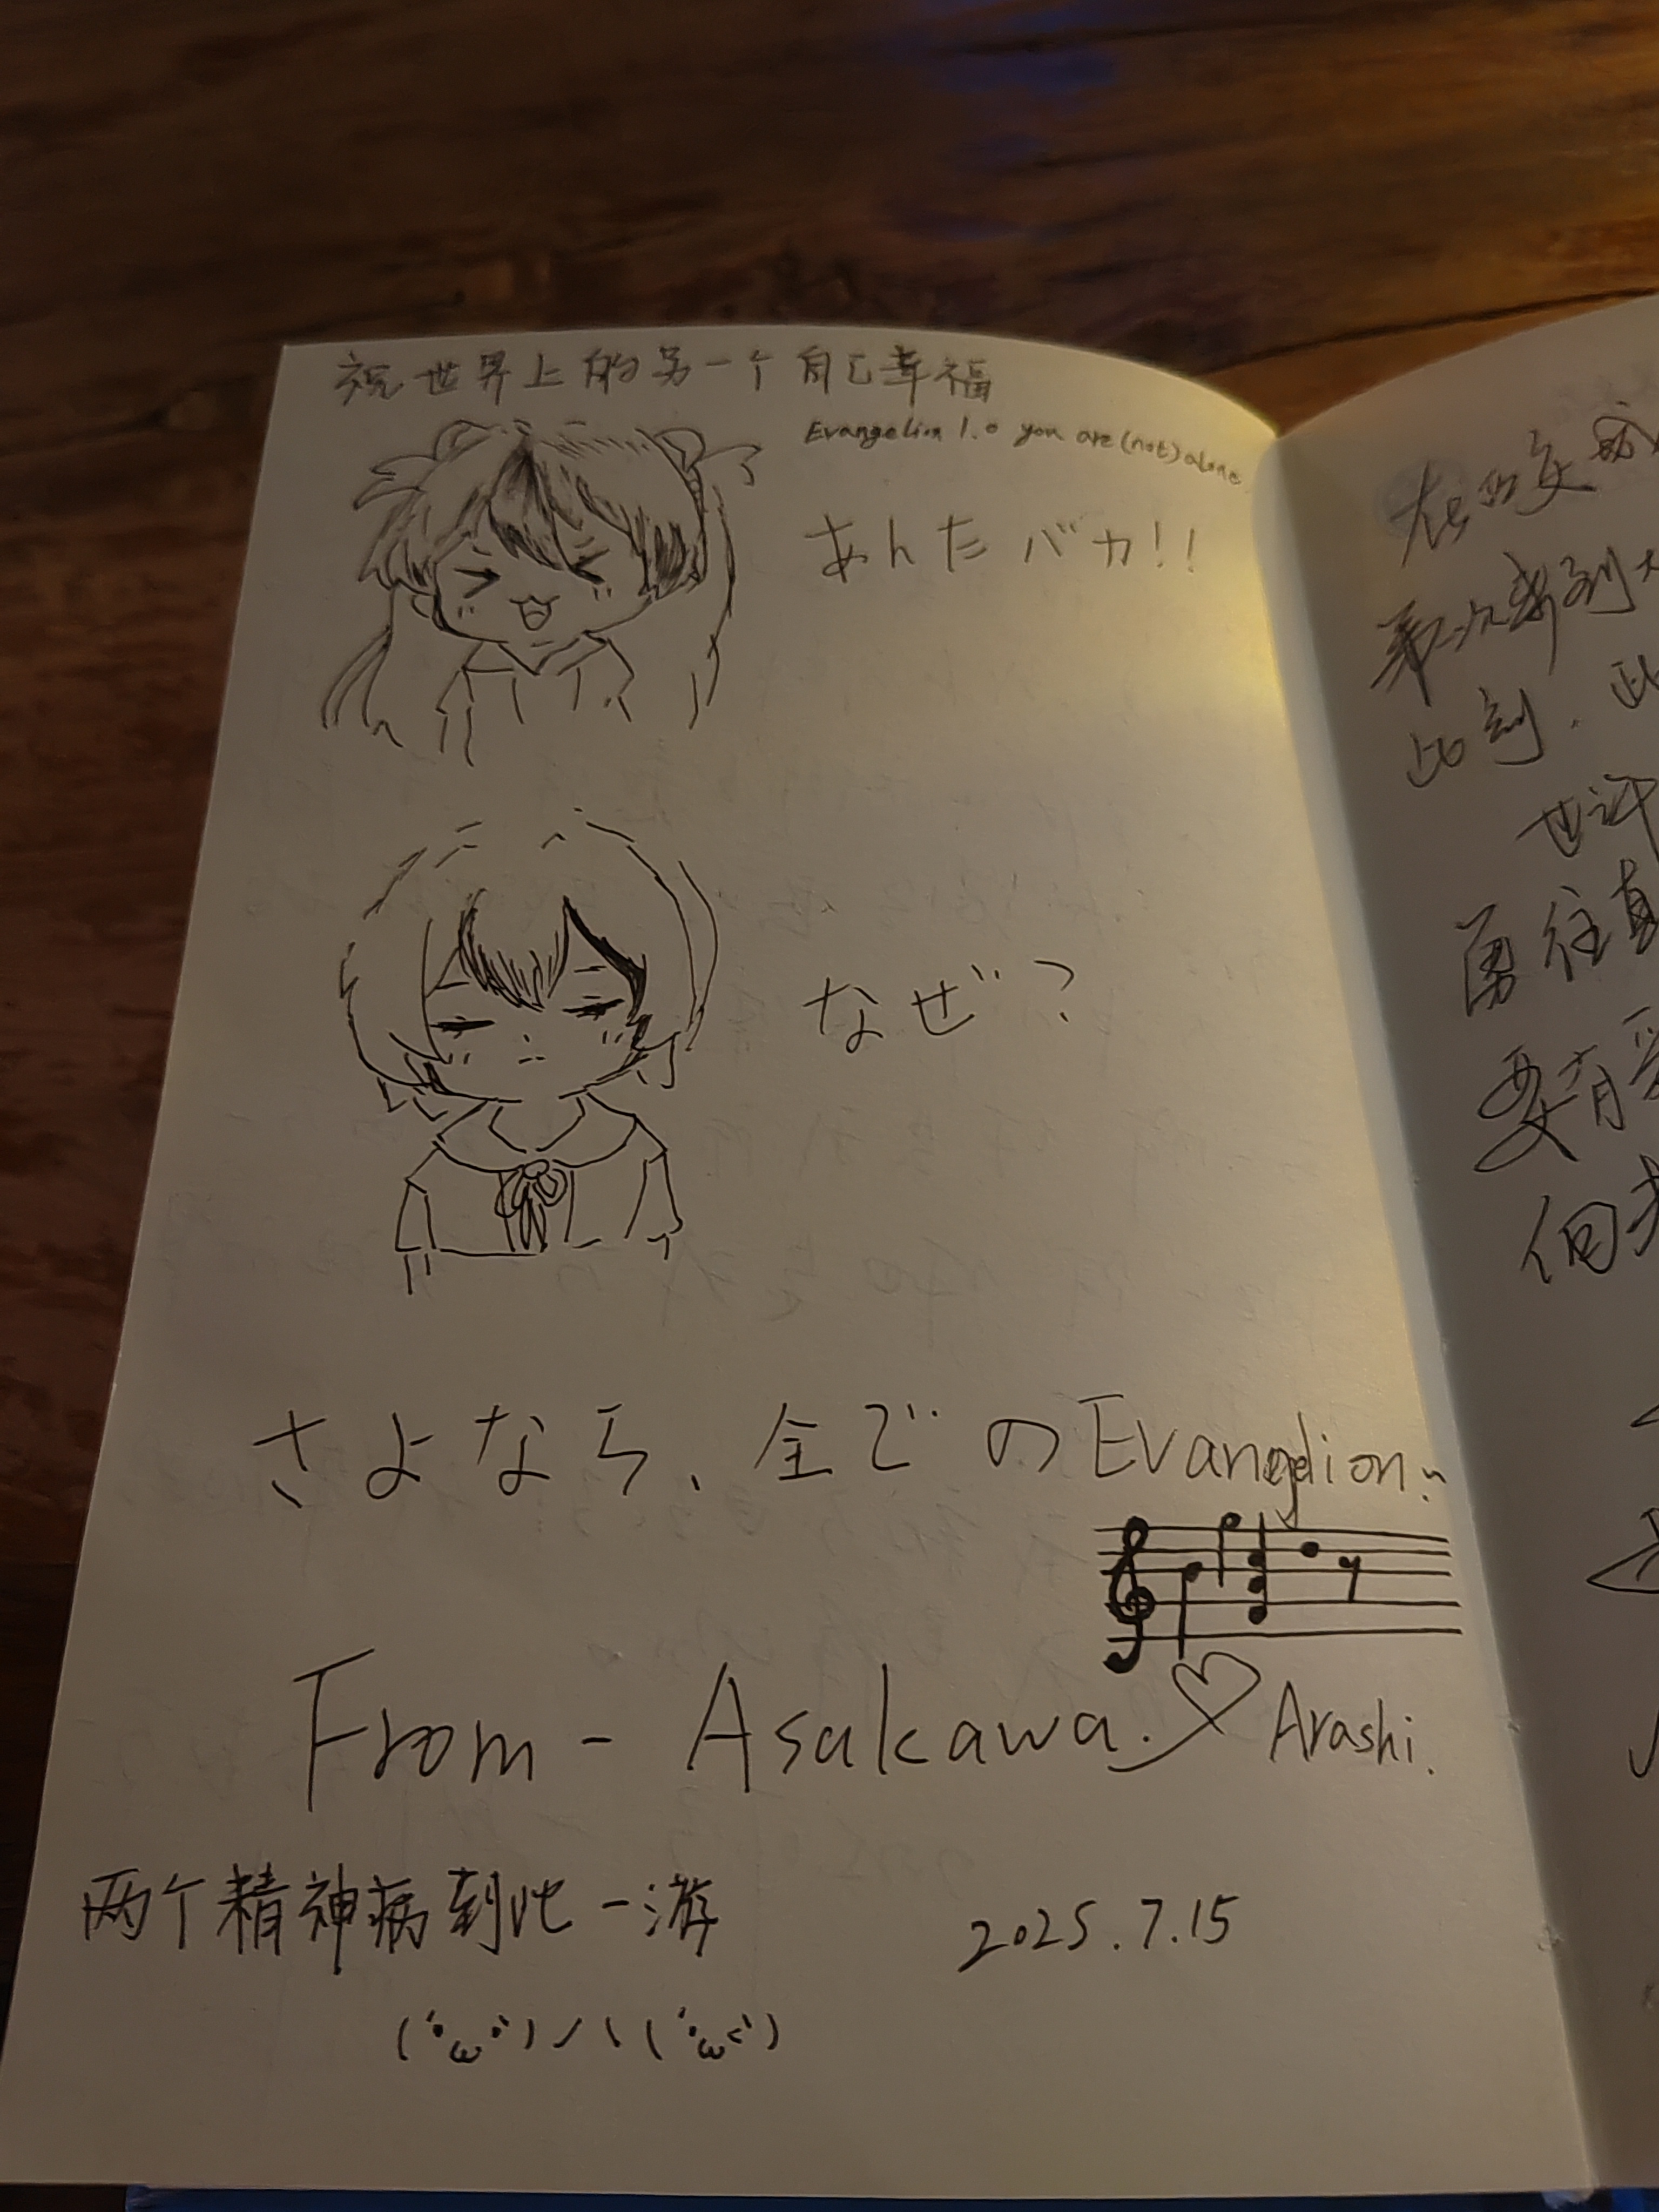 祝世界上的另一个自己幸福
Evangelion 1.0 you are (not) alone
あんたバカ!!
なぜ?
さよなら、全ての Evangelion.
From - Asakawa. Arashi.
两个精神病到此一游
2025.7.15
(´•ω•`)ノヽ(´•ω<`)
在西安
第二次来到
此刻.此
也许
勇往直
要有爱